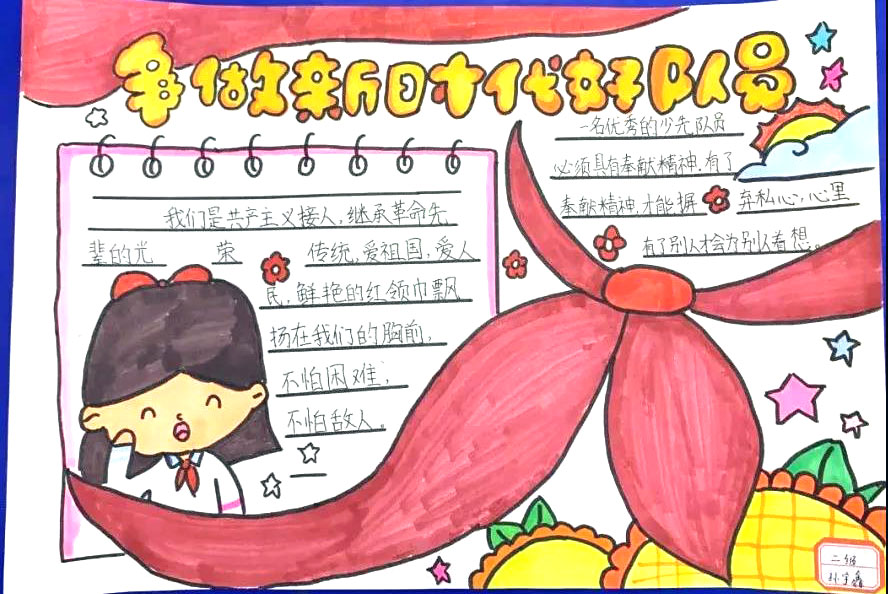 争做新时代好队员
一名优秀的少先队员
必须具有奉献精神.有了
奉献精神.才能摒弃私心,心里
有了别人才会为别人着想。
我们是共产主义接人,继承革命先
辈的光荣传统,爱祖国,爱人
民,鲜艳的红领巾飘
扬在我们的胸前,
不怕困难,
不怕敌人。
二级